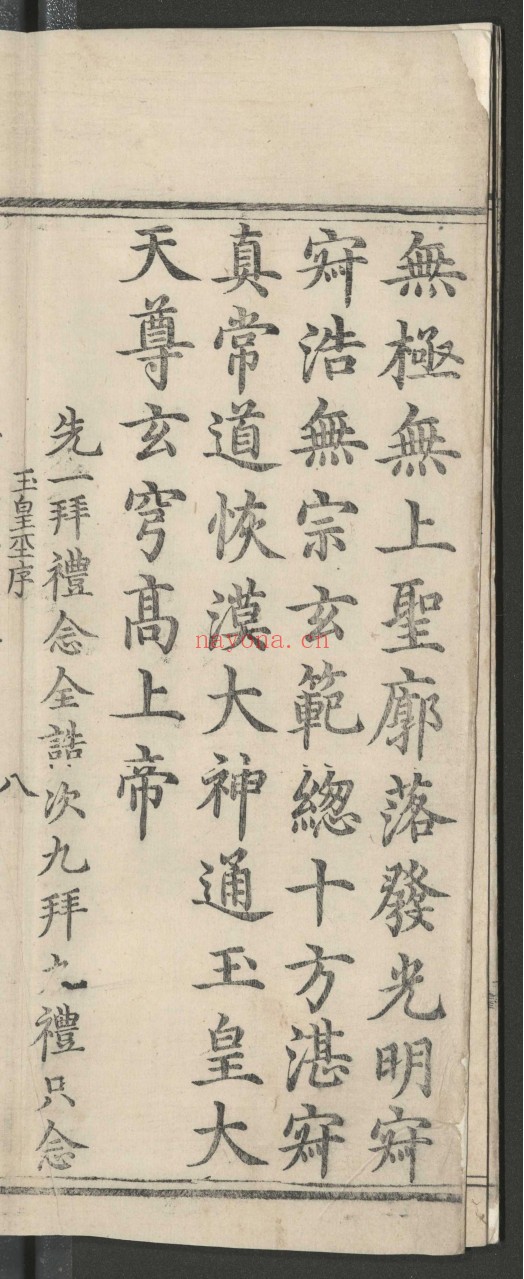 無極無上聖廓落發光明𡧯
𡧯浩無宗玄範緫十方湛𡧯
真常道恢漠大神通玉皇大
天尊玄穹髙上帝
先一拜禮念全誥次九拜九禮只念
玉皇坙序
八
nayona.cn